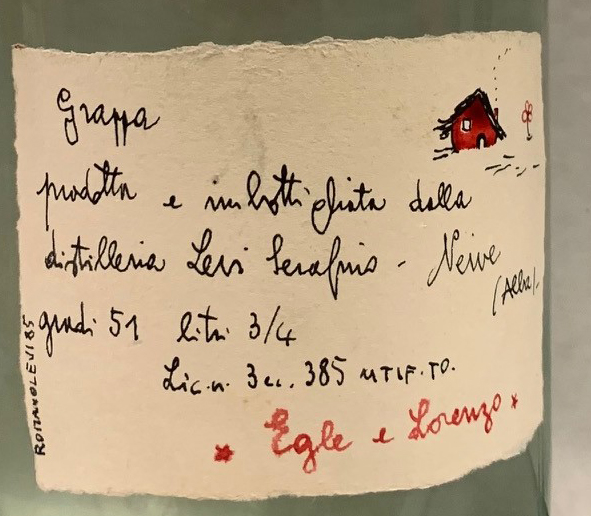 Grappa
prodotta e imbottigliata dalla
distilleria Levi Serafino - Neive
(Alba).
gradi 51 litri 3/4
Lic. n. 3 ec. 385 UTIF. TO.
* Egle e Lorenzo *
ROMANO LEVI 85